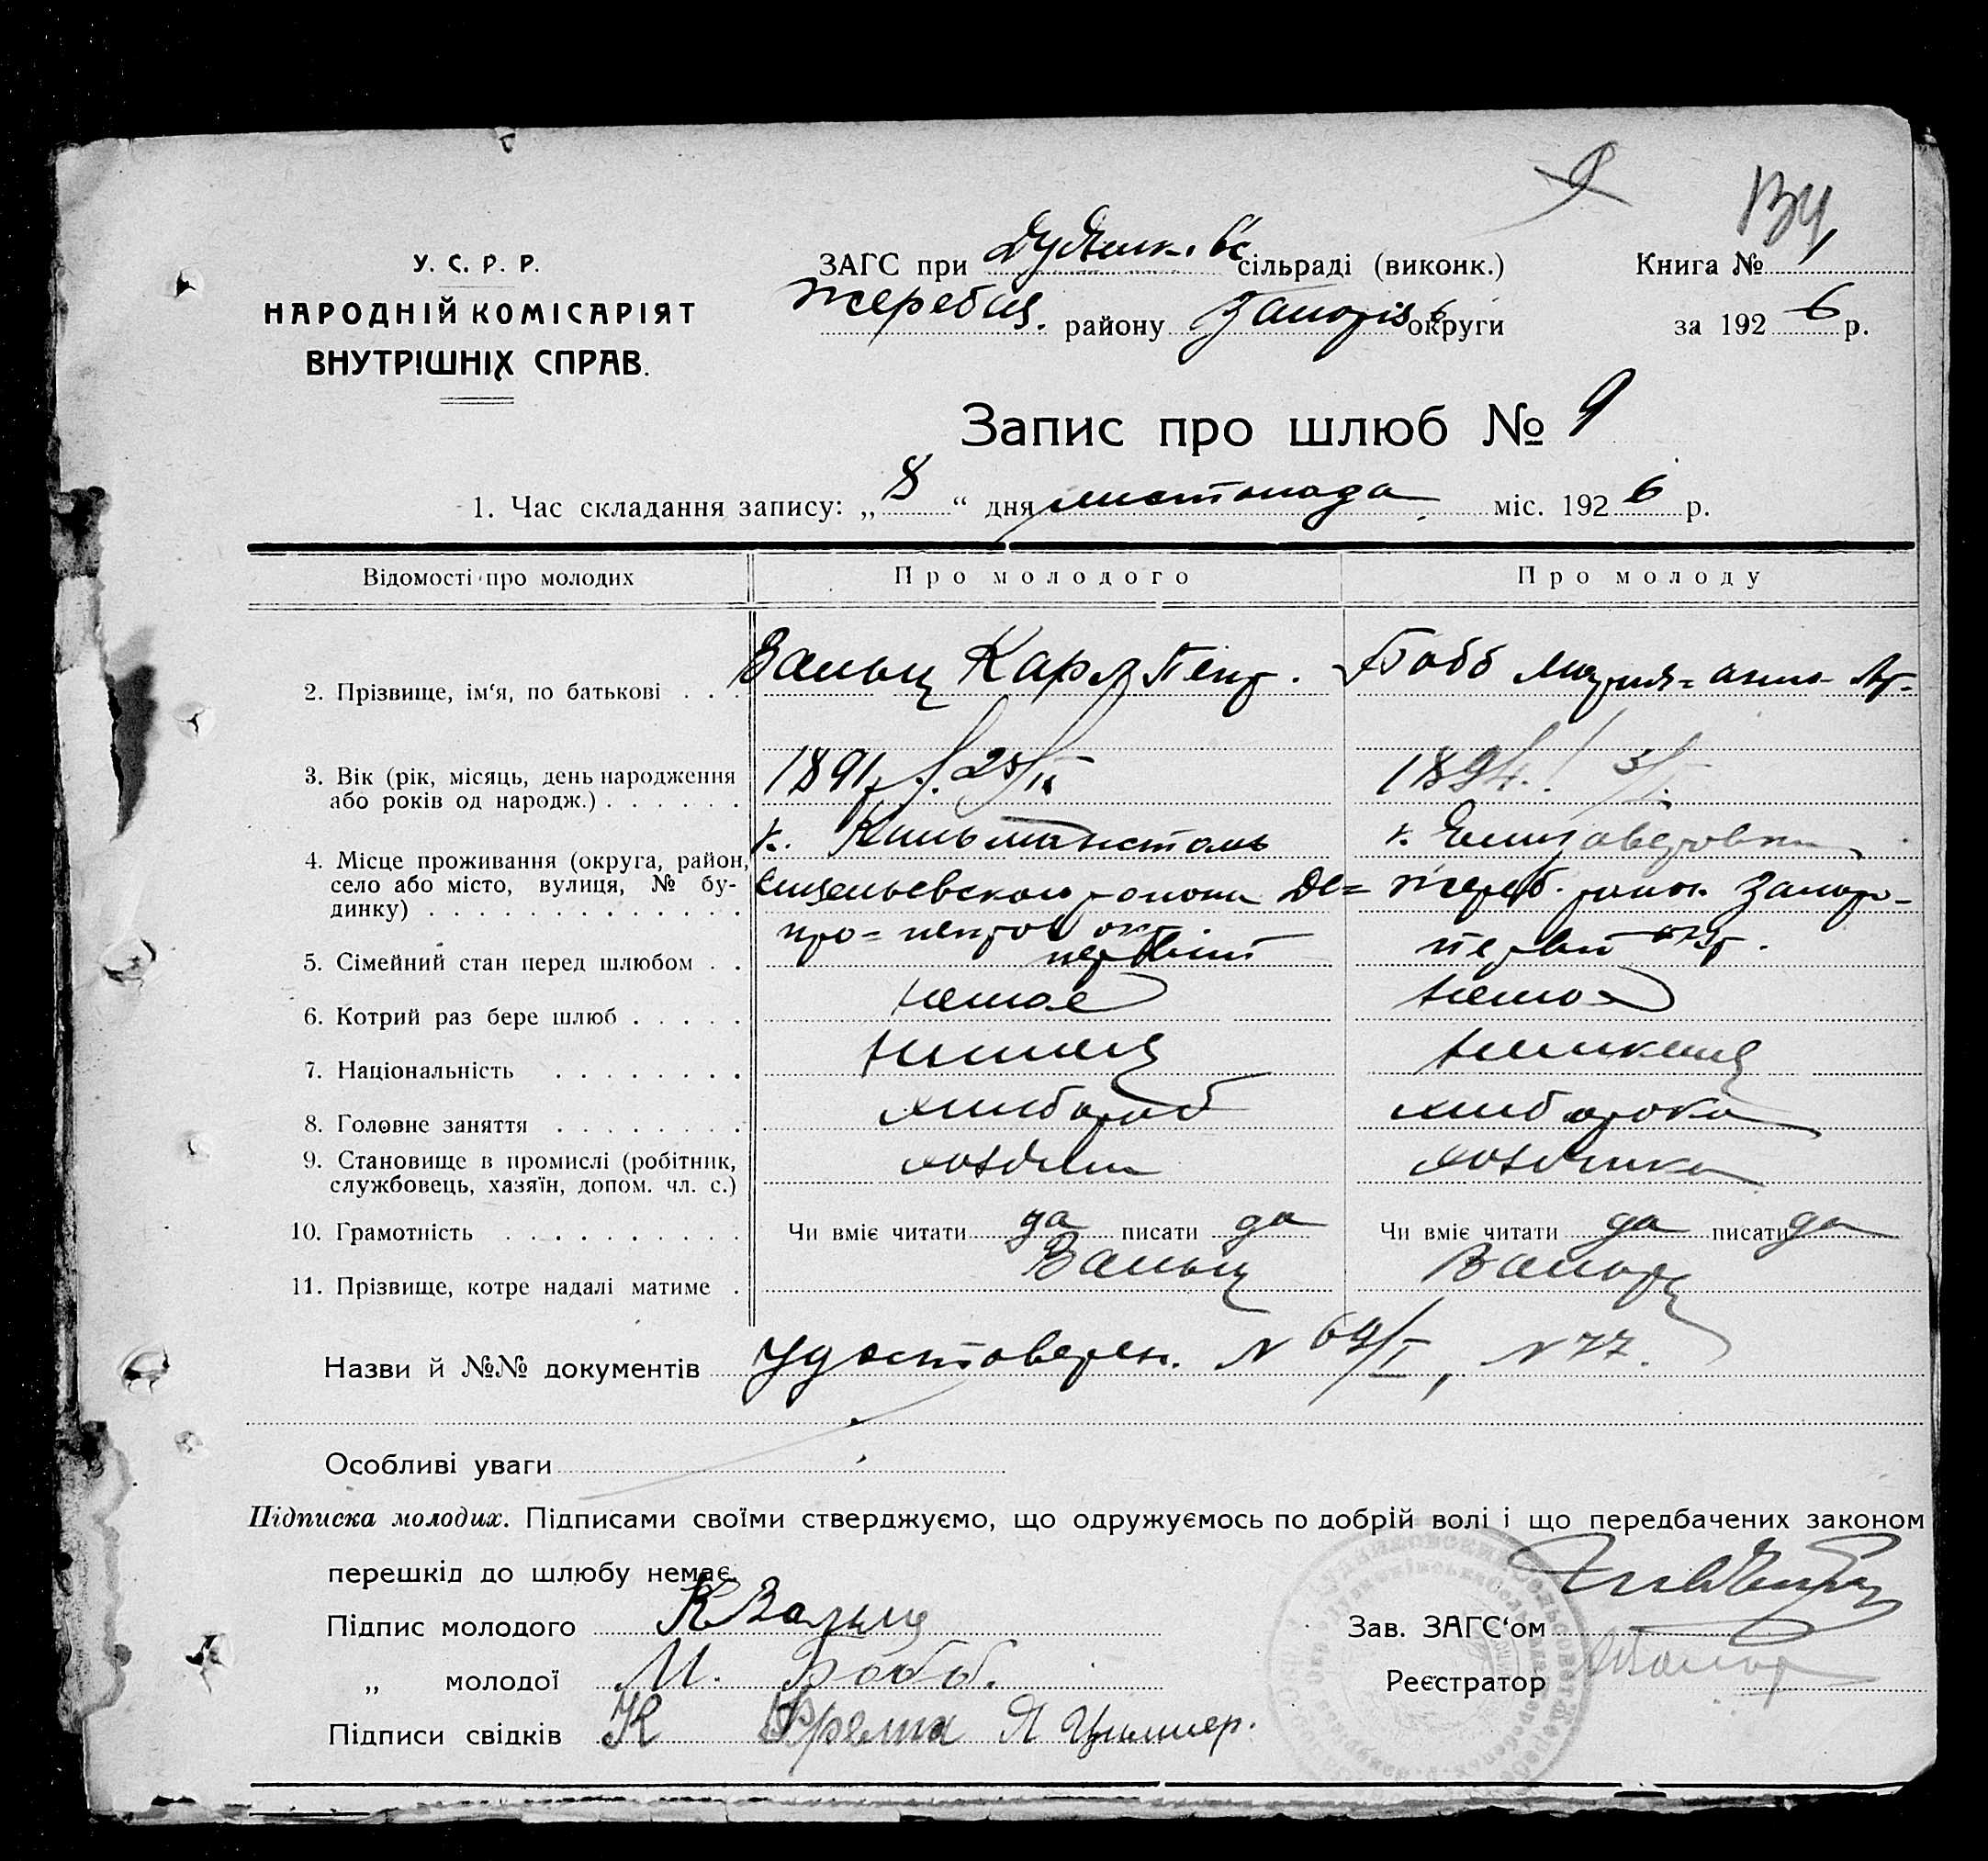 134
У. С. Р. Р.
НАРОДНІЙ КОМІСАРІЯТ
ВНУТРІШНІХ СПРАВ.
ЗАГС при сільраді (виконк.)
Жеребец. району Запоріз округи
Книга № 1
за 1926 р.
Запис про шлюб № 9
1. Час складання запису: „8“ дня листопада міс. 1926 р.
Відомості про молодих Про молодого Про молоду
2. Прізвище, ім‘я, по батькові . . . Вальц Карл Петр. Бобб Мария-анна
3. Вік (рік, місяць, день народження
або років од народж.) . . . . . . 1891 г. 1894. 3/I.
4. Місце проживання (округа, район,
село або місто, вулиця, № бу-
динку) . . . . . . . . . . . . . к. Кильмансталь района Дне=
про=петров окр. к. Елизаветовка Жереб. район. Запор-
окр.
5. Сімейний стан перед шлюбом . . первий первий
6. Котрий раз бере шлюб . . . . . немає немає
7. Національність . . . . . . . . Німець Німкеня
8. Головне заняття . . . . . . . . хлібороб хліборобка
9. Становище в промислі (робітник,
службовець, хазяїн, допом. чл. с.) хозяин хозяйка
10. Грамотність . . . . . . . . . . Чи вміє читати да писати да Чи вміє читати да писати да
11. Прізвище, котре надалі матиме . Вальц Вальц
Назви й №№ документів Удостоверен. N 69/I, N 77.
Особливі уваги
Підписка молодих. Підписами своїми стверджуємо, що одружуємось по добрій волі і що передбачених законом
перешкід до шлюбу немає.
Підпис молодого К Вальц
Зав. ЗАГС‘ом
„ молодої М. Бобб.
Реєстратор
Підписи свідків К Я Циммер.